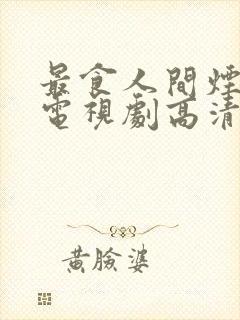 最食人間煙
電視劇高清
黃臉婆